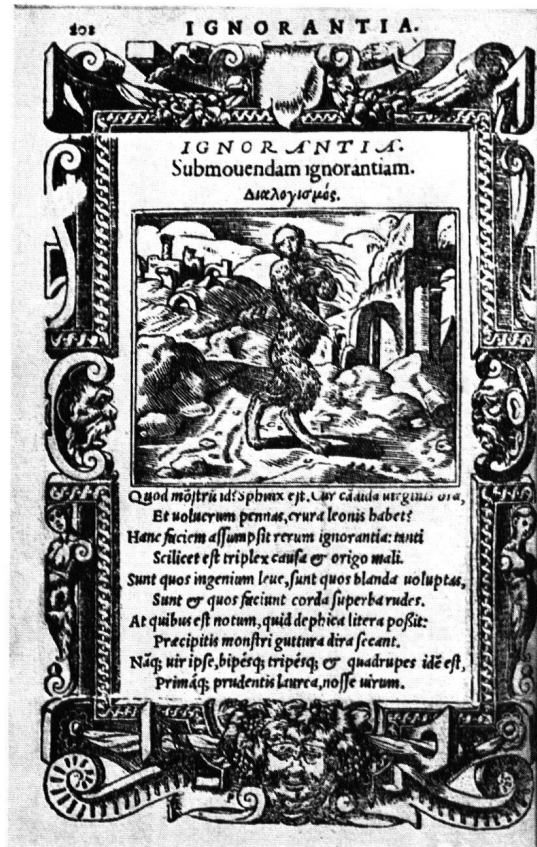 202 IGNORANTIA.
IGNORANTIA.
Submouendam ignorantiam.
Διαλογισμός.
Quod mõſtrũ id? Sphinx eſt. Cur candida uirginis ora,
Et uolucrum pennas, crura leonis habet?
Hanc faciem aſſumpſit rerum ignorantia: tanti
Scilicet eſt triplex cauſa & origo mali.
Sunt quos ingenium leue, ſunt quos blanda uoluptas,
Sunt & quos faciunt corda ſuperba rudes.
At quibus eſt notum, quid delphica litera poßit:
Præcipitis monſtri guttura dira ſecant.
Nãq; uir ipſe, bipésq; tripésq; & quadrupes idẽ eſt,
Primáq; prudentis laurea, noſſe uirum.